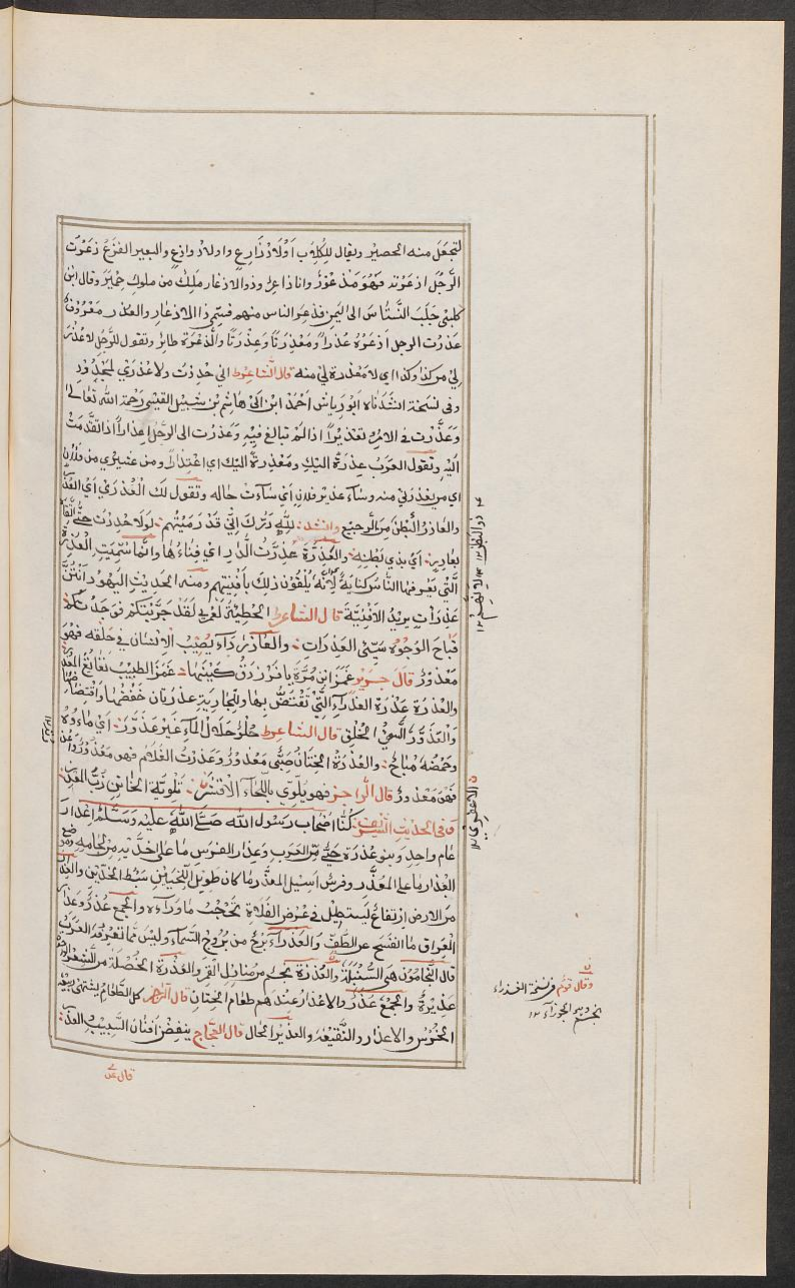 لتجعل منه الحصير ويقال للكلاب اَوْلَادُ ذَارِعٍ واولاد وازعٍ والبعير الفزع ذعوت
الرَّجُل اذعوته فهو مذعوز وانا ذاعر وذو الاذغار ملك من ملوك حمير وقال ابن
كلبى جَلَبَ النسناس الى اليمن فذعر الناس منهم فسمى ذا الاذعار والعذر معروف
عذرت الرجل اَعذره عُذراً ومعذرتاً وعِذرتاً والذعرة طائر وتقول للرجل لا عُذْرَ
لى من كذا وكذا اى لا معذرة لى منه قال الشاعر انى حُدِدْتُ ولا عُذرَى لمحدود
وفى نسخة انشدناه ابو رياش احمد ابن ابى هاشم بن شبيل القيسى رحمة الله تعالى
وعَذّرت فى الامر تعذيراً اذا لم تبالغ فيه وعذرت الى الرجل اعذاراً اذا تقدمت
اليه وتقول العرب عذرة اليك ومعذرة اليك اى اعتذاراً ومن عذيرى من فلان
اى من يعذرنى منه وساء عذير فلان اى ساءت حاله وتقول لك العُذرى اى العذر
والعاذر البطن من الرجيع وانشد لله درك انى قد رميتهم لولا حددت
بعاذر اى بذى بطنه والعذرة عذرت الدار اى فناءُها وانما سُميت العذرة
التى يعرفها الناس كناية لانه يلقون ذلك بافنيتهم ومنه الحديث اليهود انتن
عذراتٍ يريد الافنية قال الشاعر الحطيئة لعمرى لقد جربتكم فوجدتكم
قباح الوجوه سيّئى العذرات والعاذر داء يصيب الانسان فى حلقه فهو
معذور قال جرير غمز ابن مرة يا فرزدق كينها غمز الطبيب نغانغ المعذور
والعذرة عذرة العذراء التى تقتض بها وللجارية عذرتان خفضها واقتضاضها
والعذوّر السىّء الخلق قال الشاعر حُلوٌ حلال الماء غير عذوّر اى ماءوه
وحمضه مباح والعذرة الختان صبى معذور وعذرت الغلام فهو معذور واعذر
فهو معذور قال الراجز فهو يلوّى باللحاء الاقشر تلوية الخاتن زبّ المعذر
وفى الحديث الشريف كنّا اصحاب رسول الله صَلَّى الله عليه وَسَلَّم اعذار
عام واحد وبنو عذرة حىّ من العرب وعذار الفرس ما على خديه من اللجام
العذار ما على المعذّر وفرس اسيل المعذّر ما كان طويل اللحيين سبط الخدين والعذار
من الارض ارتفاع ليستطيل فى عرض الفلاة يحجب ما وراءه والجمع عذر وعذار
العراق ما انفسح عن الطفّ والعذراء برج من بروج السماء وليس مما تعرفه العرب
قال النجامون هى السنبلة والعذرة نجم من منازل القمر والعذرة الخصلة من الشعر
عذيرة والجمع عذر والاعذار عندهم طعام الختان قال الراجز كل الطعام يشتهى ربيعه
الخرس والاعذار والنقيعه والعذير الحال قال العجاج ينفض افنان السبيب والعذر
وقال قوم فى نسخة العذراء
نجم وهو الجوزاء
قال عدى